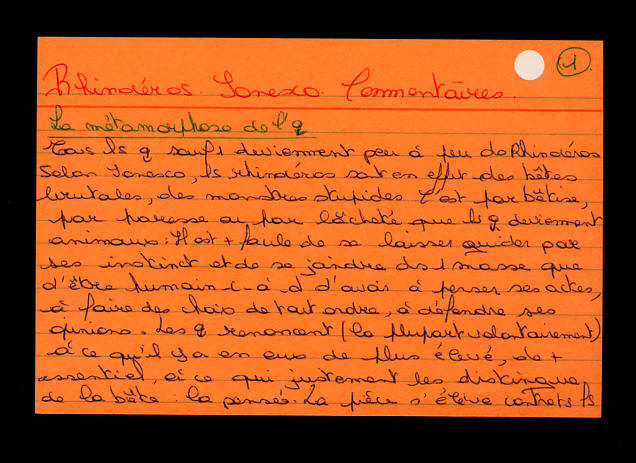 1
Rhinocéros. Ionesco. Commentaires.
La métamorphose de l'q
Tous ls q sauf 1 deviennent peu à peu ds Rhinocéros
Selon Ionesco, ls rhinocéros sont en effet des bêtes
brutales, des monstres stupides. C'est par bêtise,
par paresse ou par lâcheté que ls q deviennent
animaux : Il est + facile de se laisser guider par
ses instinct et de se joindre ds 1 masse que
d'être humain c-à-d d'avoir à penser ses actes,
à faire des choix de tout ordre, à défendre ses
opinions. Les q renoncent (la plupart volontairement)
à ce qu'il y a en eux de plus élevé, de +
essentiel, à ce qui justement les distingue
de la bête : la pensée. La pièce s'élève contre ts ls